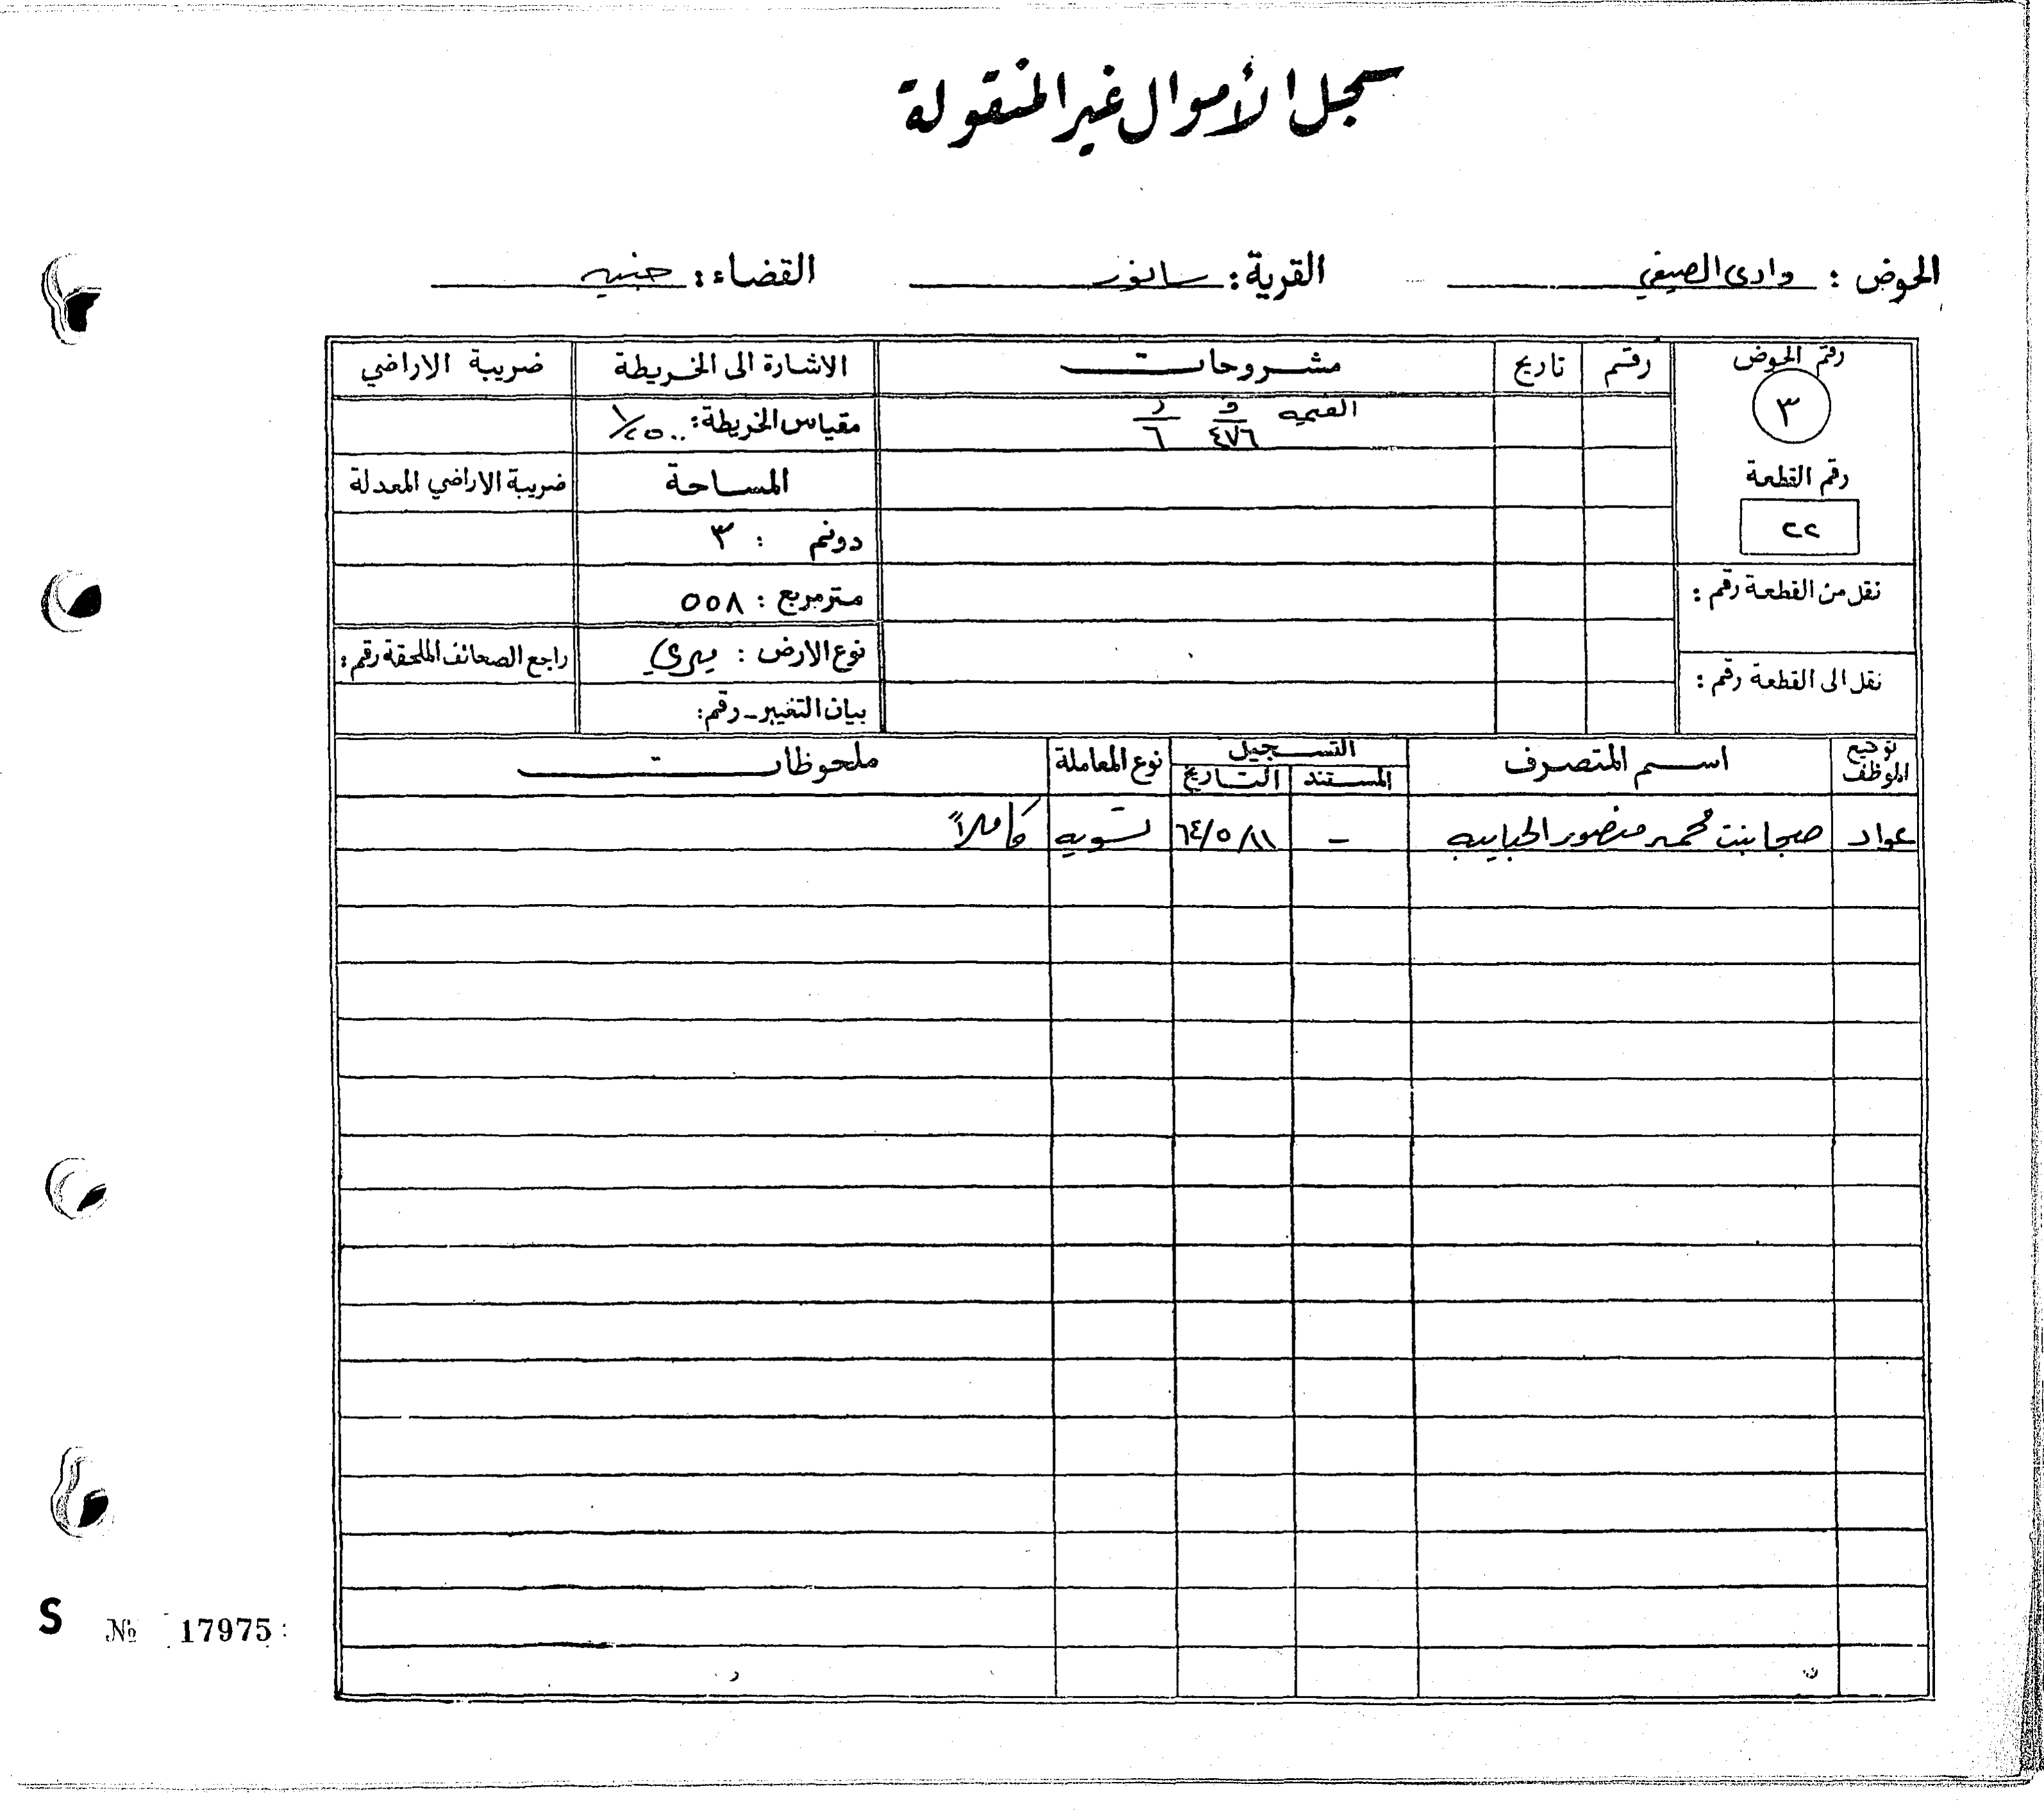 سجل الأموال غير المنقولة
الحوض : وادي الصيفي القرية : سانور القضاء : جنين
رقم الحوض رقم تاريخ مشروحات الاشارة الى الخريطة ضريبة الاراضي
٣ القيمه ف ٤٧٦ د ٦ مقياس الخريطة: ١/٢٥٠٠
رقم القطعة المساحة ضريبة الاراضي المعدلة
٢٢ دونم : ٣
نقل من القطعة رقم : متر مربع : ٥٥٨
نوع الارض : ميري راجع الصحائف الملحقة رقم :
نقل الى القطعة رقم : بيان التغيير - رقم :
توقيع الموظف اسم المتصرف التسجيل نوع المعاملة ملحوظات
المستند التاريخ
عواد صبحا بنت محمد منصور الحبايبه - ٦٤/٥/١١ تسويه كاملاً
S № 17975